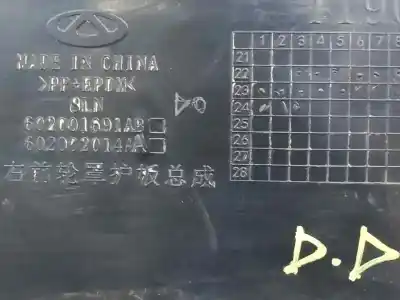 MADE IN CHINA
>PP+EPDM<
8LN
602001691AB
602002014AA
右前轮罩护板总成
1 2 3 4 5 6 7 8
21
22
23
24
25
26
27
28
D.D